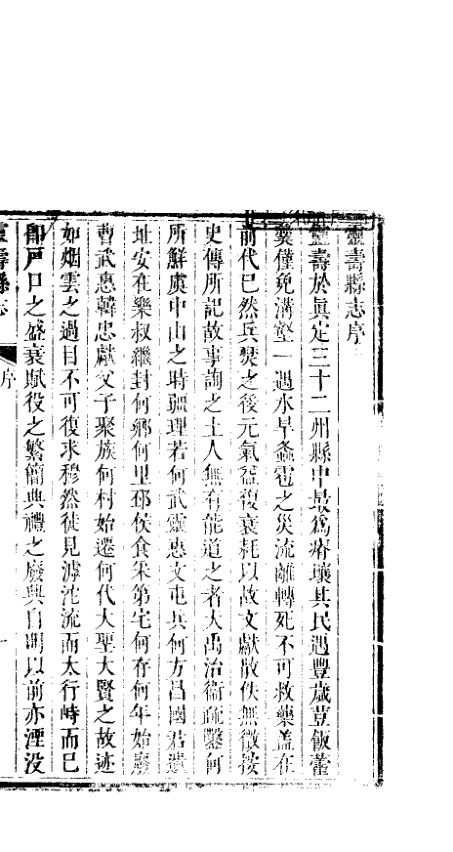 靈壽縣志序
靈壽於眞定三十二州縣中最爲瘠壤其民遇豐歲荳飯藿
羹僅免溝壑一遇水旱螽雹之災流離轉死不可救藥盖在
前代已然兵燹之後元氣益復衰耗以故文獻散佚無徵按
史傳所記故事詢之土人無有能道之者大禹治衞疏鑿何
所鮮虞中山之時疆理若何武靈惠文屯兵何方昌國君遺
址安在樂叔繼封何鄉何里邳侯食釆第宅何存何年始廢
曹武惠韓忠獻父子聚族何村始遷何代大聖大賢之故迹
如烟雲之過目不可復求穆然徒見滹沱流而太行峙而已
卽戸口之盛衰賦役之繁簡典禮之廢興自明以前亦湮没
靈壽縣志
序
一